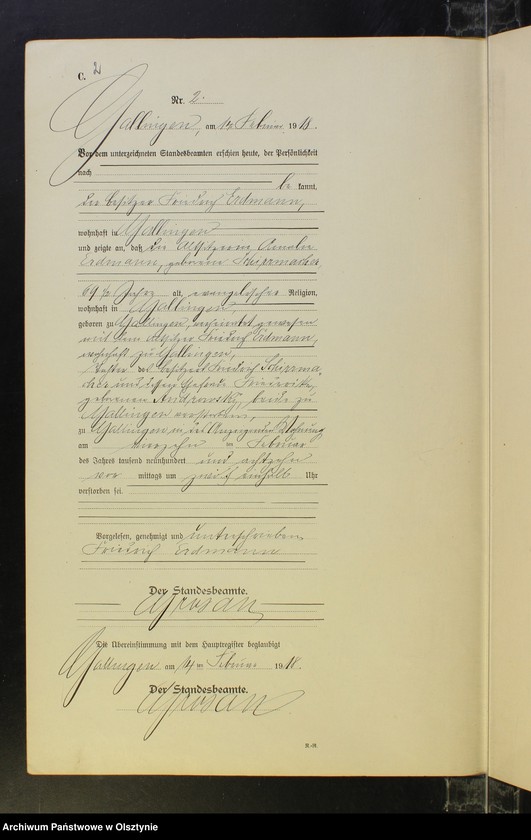 C. 2
Nr. 2.
Gallingen, am 14 Februar 1918.
Vor dem unterzeichneten Standesbeamten erschien heute, der Persönlichkeit
nach
be kannt,
der Besitzer Friedrich Erdmann,
wohnhaft in Gallingen
und zeigte an, daß die Altsitzerin Amalie
Erdmann, geborene Schirrmacher,
69 ½ Jahre alt, evangelischer Religion,
wohnhaft in Gallingen,
geboren zu Gallingen, verheiratet gewesen
mit dem Altsitzer Friedrich Erdmann,
wohnhaft zu Gallingen,
Tochter des Besitzers Friedrich Schirrma-
cher und dessen Ehefrau Friederike,
geborenen Androwsky, beide zu
Gallingen verstorben,
zu Gallingen in des Anzeigenden Wohnung
am vierzehn ten Februar
des Jahres tausend neunhundert und achtzehn
vor mittags um zwölf einhalb Uhr
verstorben sei.
Vorgelesen, genehmigt und unterschrieben
Friedrich Erdmann
Der Standesbeamte.
Die Übereinstimmung mit dem Hauptregister beglaubigt
Gallingen am 14 ten Februar 1918.
Der Standesbeamte.
Archiwum Państwowe w Olsztynie